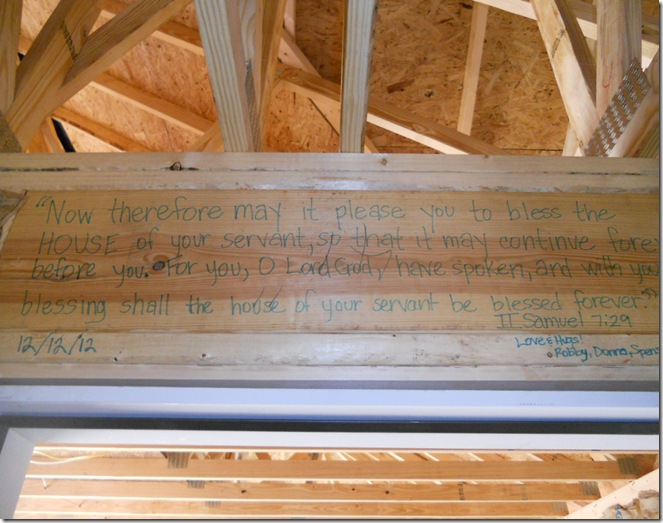 "Now therefore may it please you to bless the
HOUSE of your servant, so that it may continue forev
before you. For you, O Lord God, have spoken, and with you
blessing shall the house of your servant be blessed forever."
II Samuel 7:29
12/12/12
Love & Hugs!
Robby, Donna, Spens